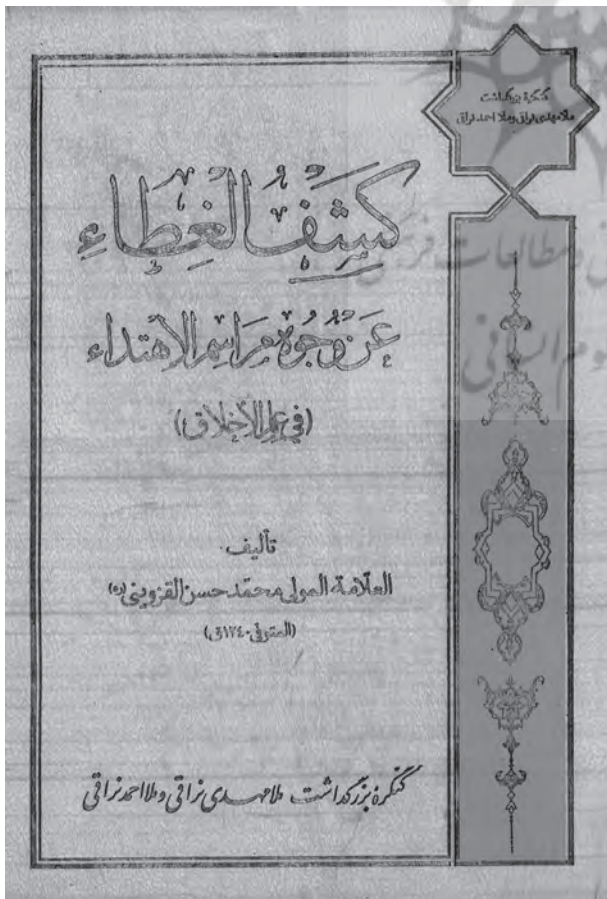 کنگرهٔ بزرگداشت
ملا مهدی نراقی و ملا احمد نراقی
كَشْفُ الْغِطَاءِ
عَنْ وُجُوهِ مَرَاسِمِ الْاِهْتِدَاء
(في عِلمِ الْأَخلاق)
تأليف
العلّامة المولى محمّد حسن القزوينى (ره)
(المتوفى ١٢٤٠ق)
کنگرهٔ بزرگداشت ملا مهدی نراقی و ملا احمد نراقی
و مطالعات فر
وم انسانی